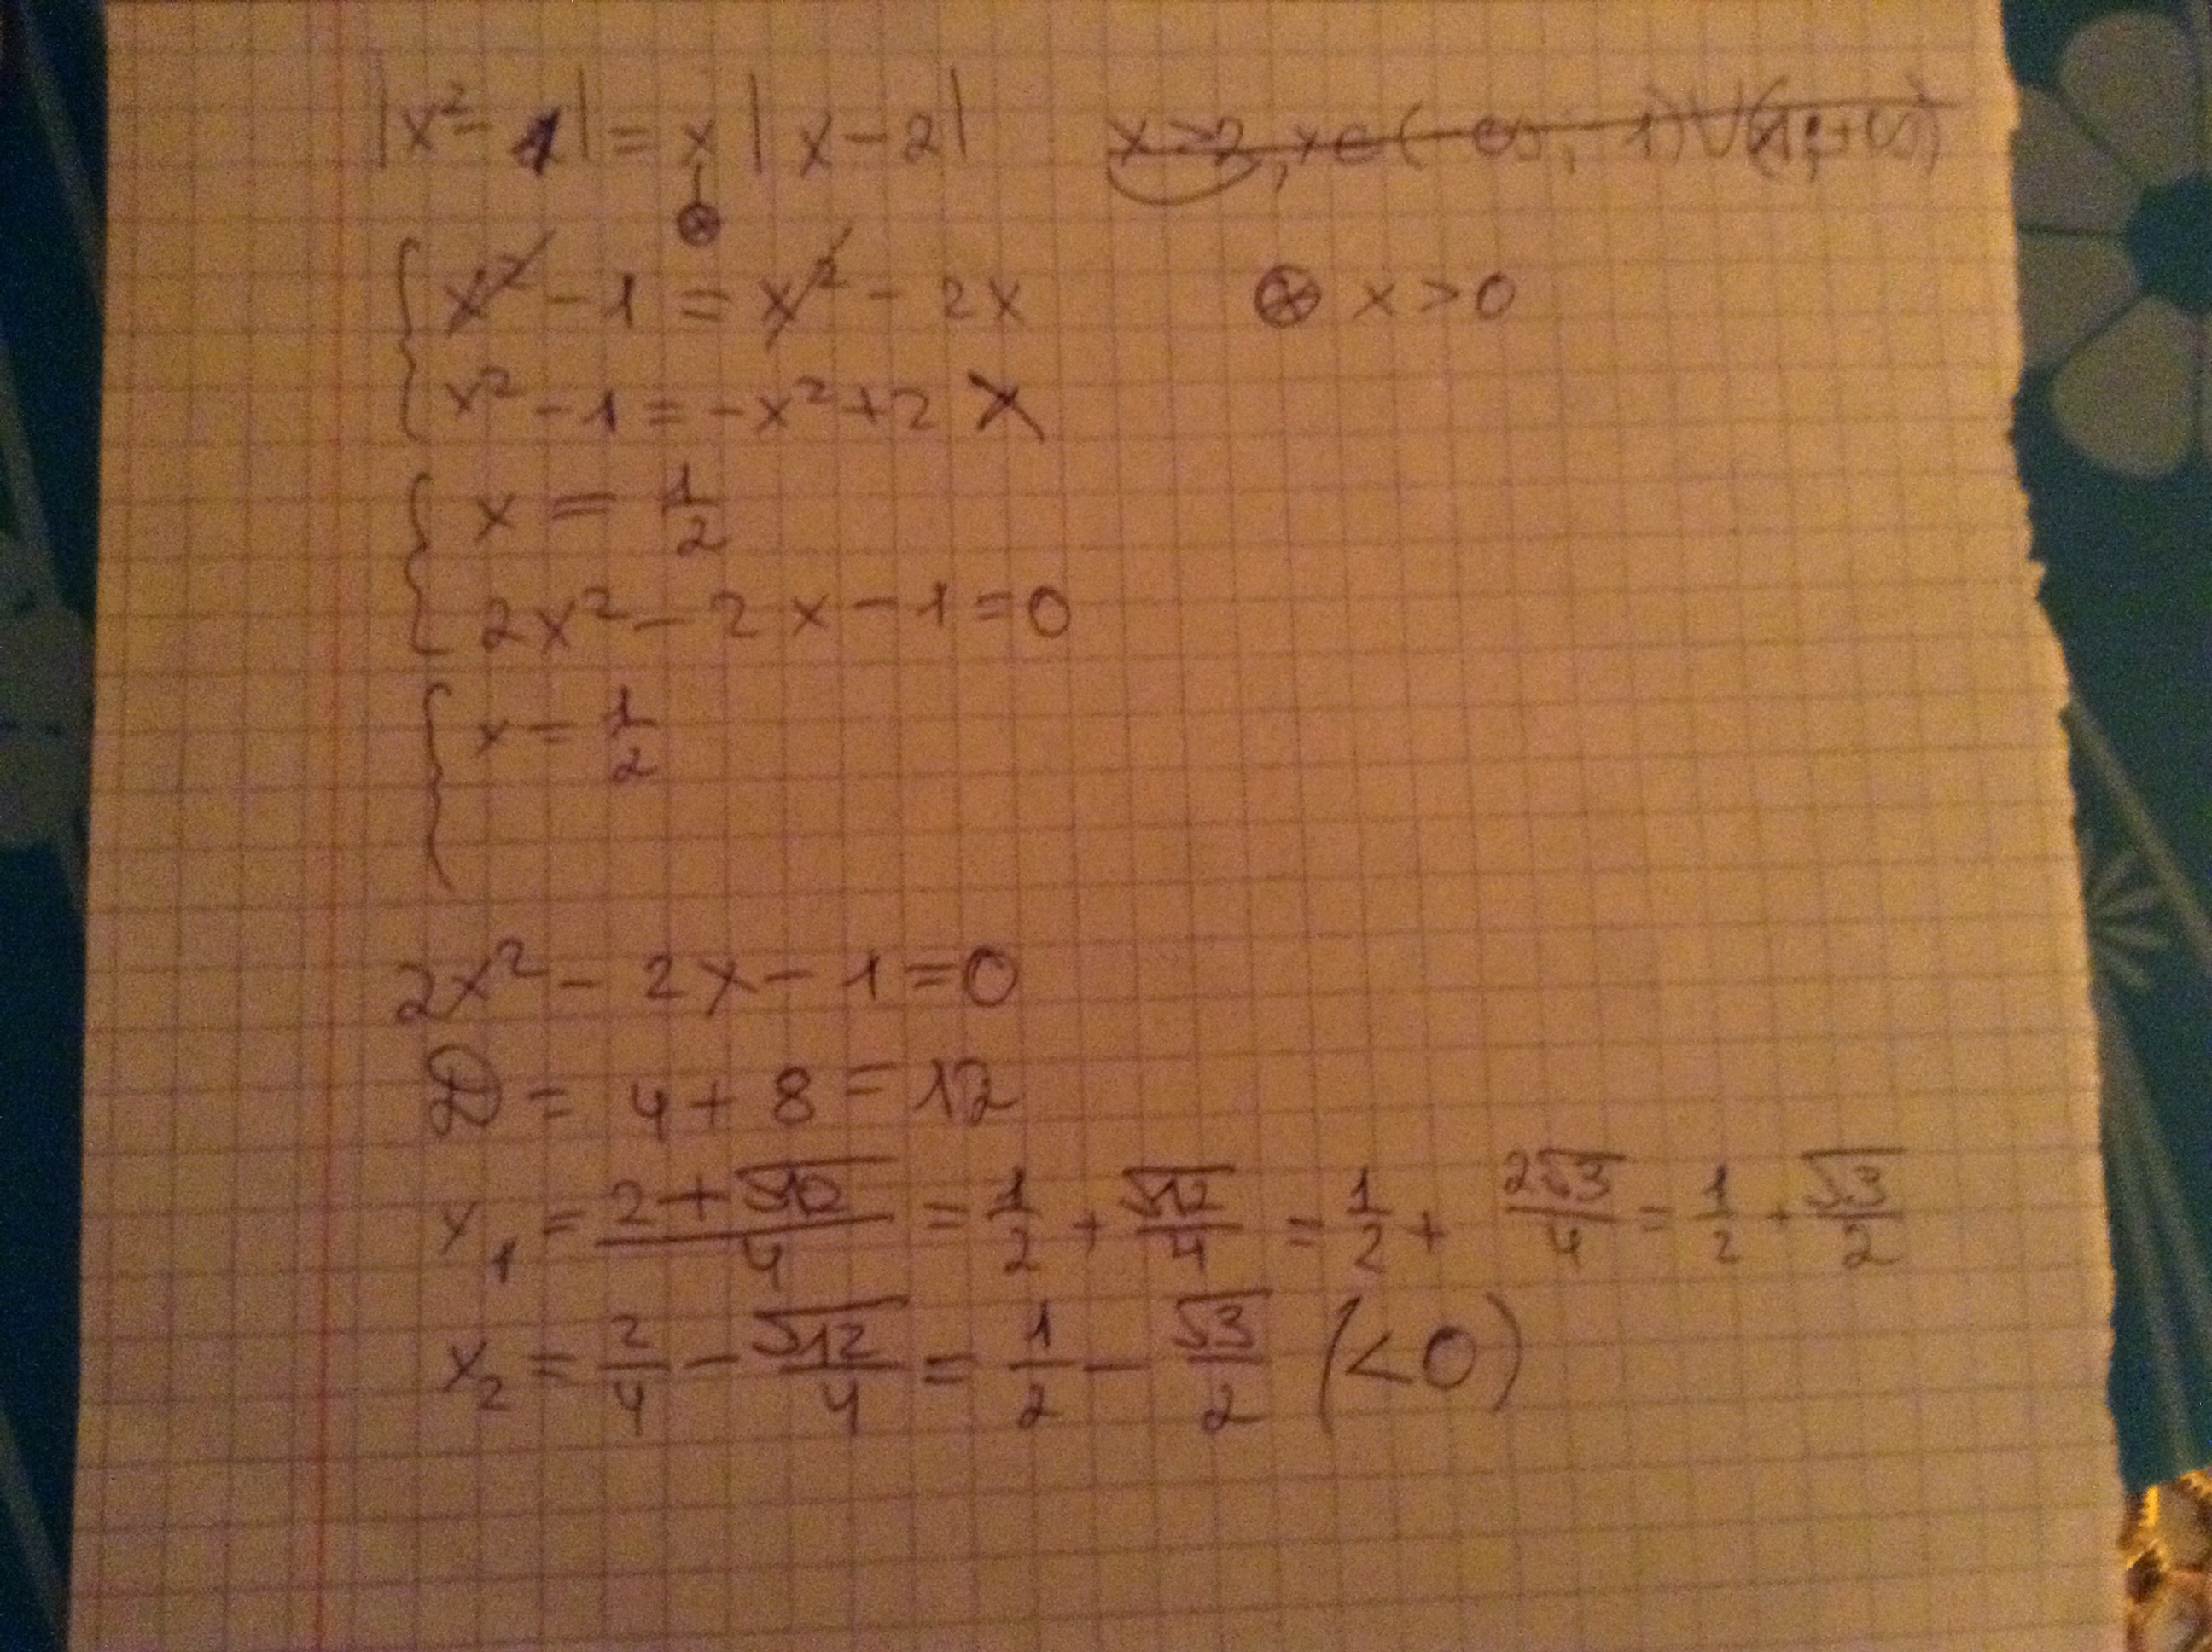 |x² - 1| = x |x - 2| x > 2, x ∈ (-∞; -1) ∪ (1; +∞)
⊗
x² - 1 = x² - 2x ⊗ x > 0
x² - 1 = -x² + 2x
x = 1/2
2x² - 2x - 1 = 0
x = 1/2
2x² - 2x - 1 = 0
D = 4 + 8 = 12
x₁ = (2 + √12)/4 = 1/2 + √12/4 = 1/2 + 2√3/4 = 1/2 + √3/2
x₂ = 2/4 - √12/4 = 1/2 - √3/2 (<0)